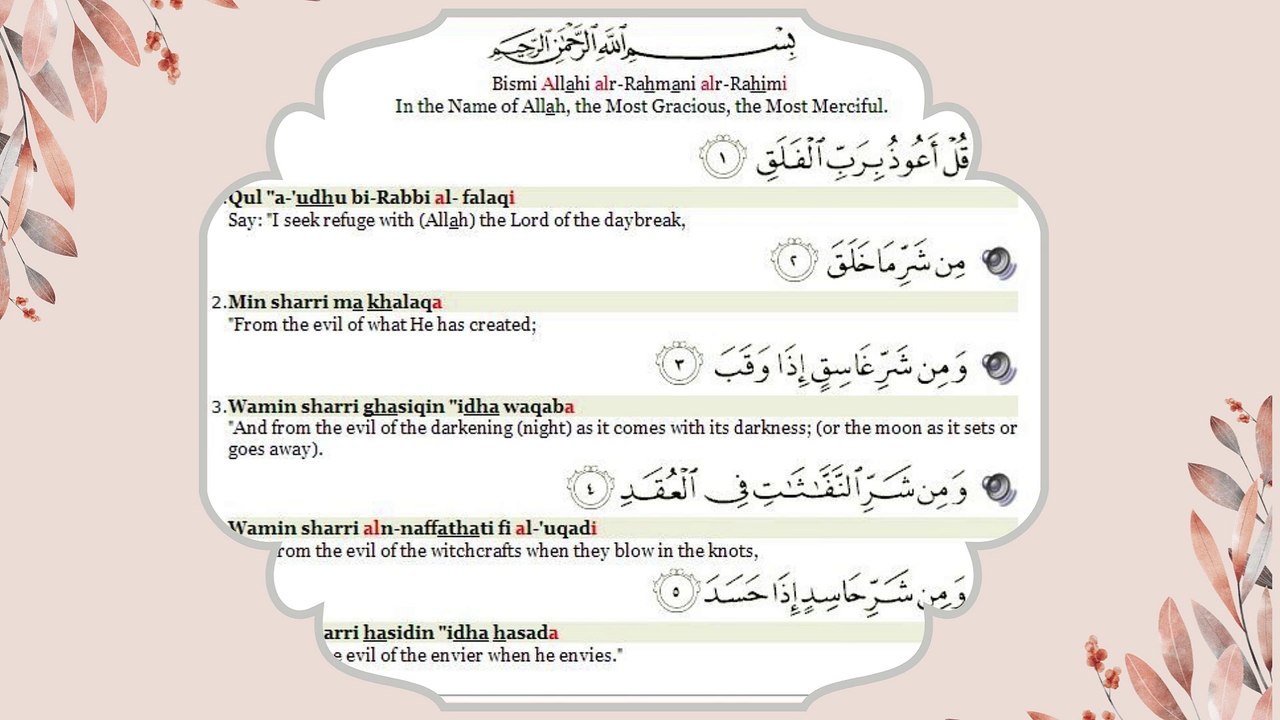 بِسْمِ ٱللَّهِ ٱلرَّحْمَٰنِ ٱلرَّحِيمِ
Bismi Allahi alr-Rahmani alr-Rahimi
In the Name of Allah, the Most Gracious, the Most Merciful.
قُلْ أَعُوذُ بِرَبِّ ٱلْفَلَقِ ١
.Qul "a-'udhu bi-Rabbi al- falaqi
Say: "I seek refuge with (Allah) the Lord of the daybreak,
مِن شَرِّ مَا خَلَقَ ٢
2.Min sharri ma khalaqa
"From the evil of what He has created;
وَمِن شَرِّ غَاسِقٍ إِذَا وَقَبَ ٣
3.Wamin sharri ghasiqin "idha waqaba
"And from the evil of the darkening (night) as it comes with its darkness; (or the moon as it sets or
goes away).
وَمِن شَرِّ ٱلنَّفَّٰثَٰتِ فِى ٱلْعُقَدِ ٤
Wamin sharri aln-naffathati fi al-'uqadi
rom the evil of the witchcrafts when they blow in the knots,
وَمِن شَرِّ حَاسِدٍ إِذَا حَسَدَ ٥
arri hasidin "idha hasada
e evil of the envier when he envies."